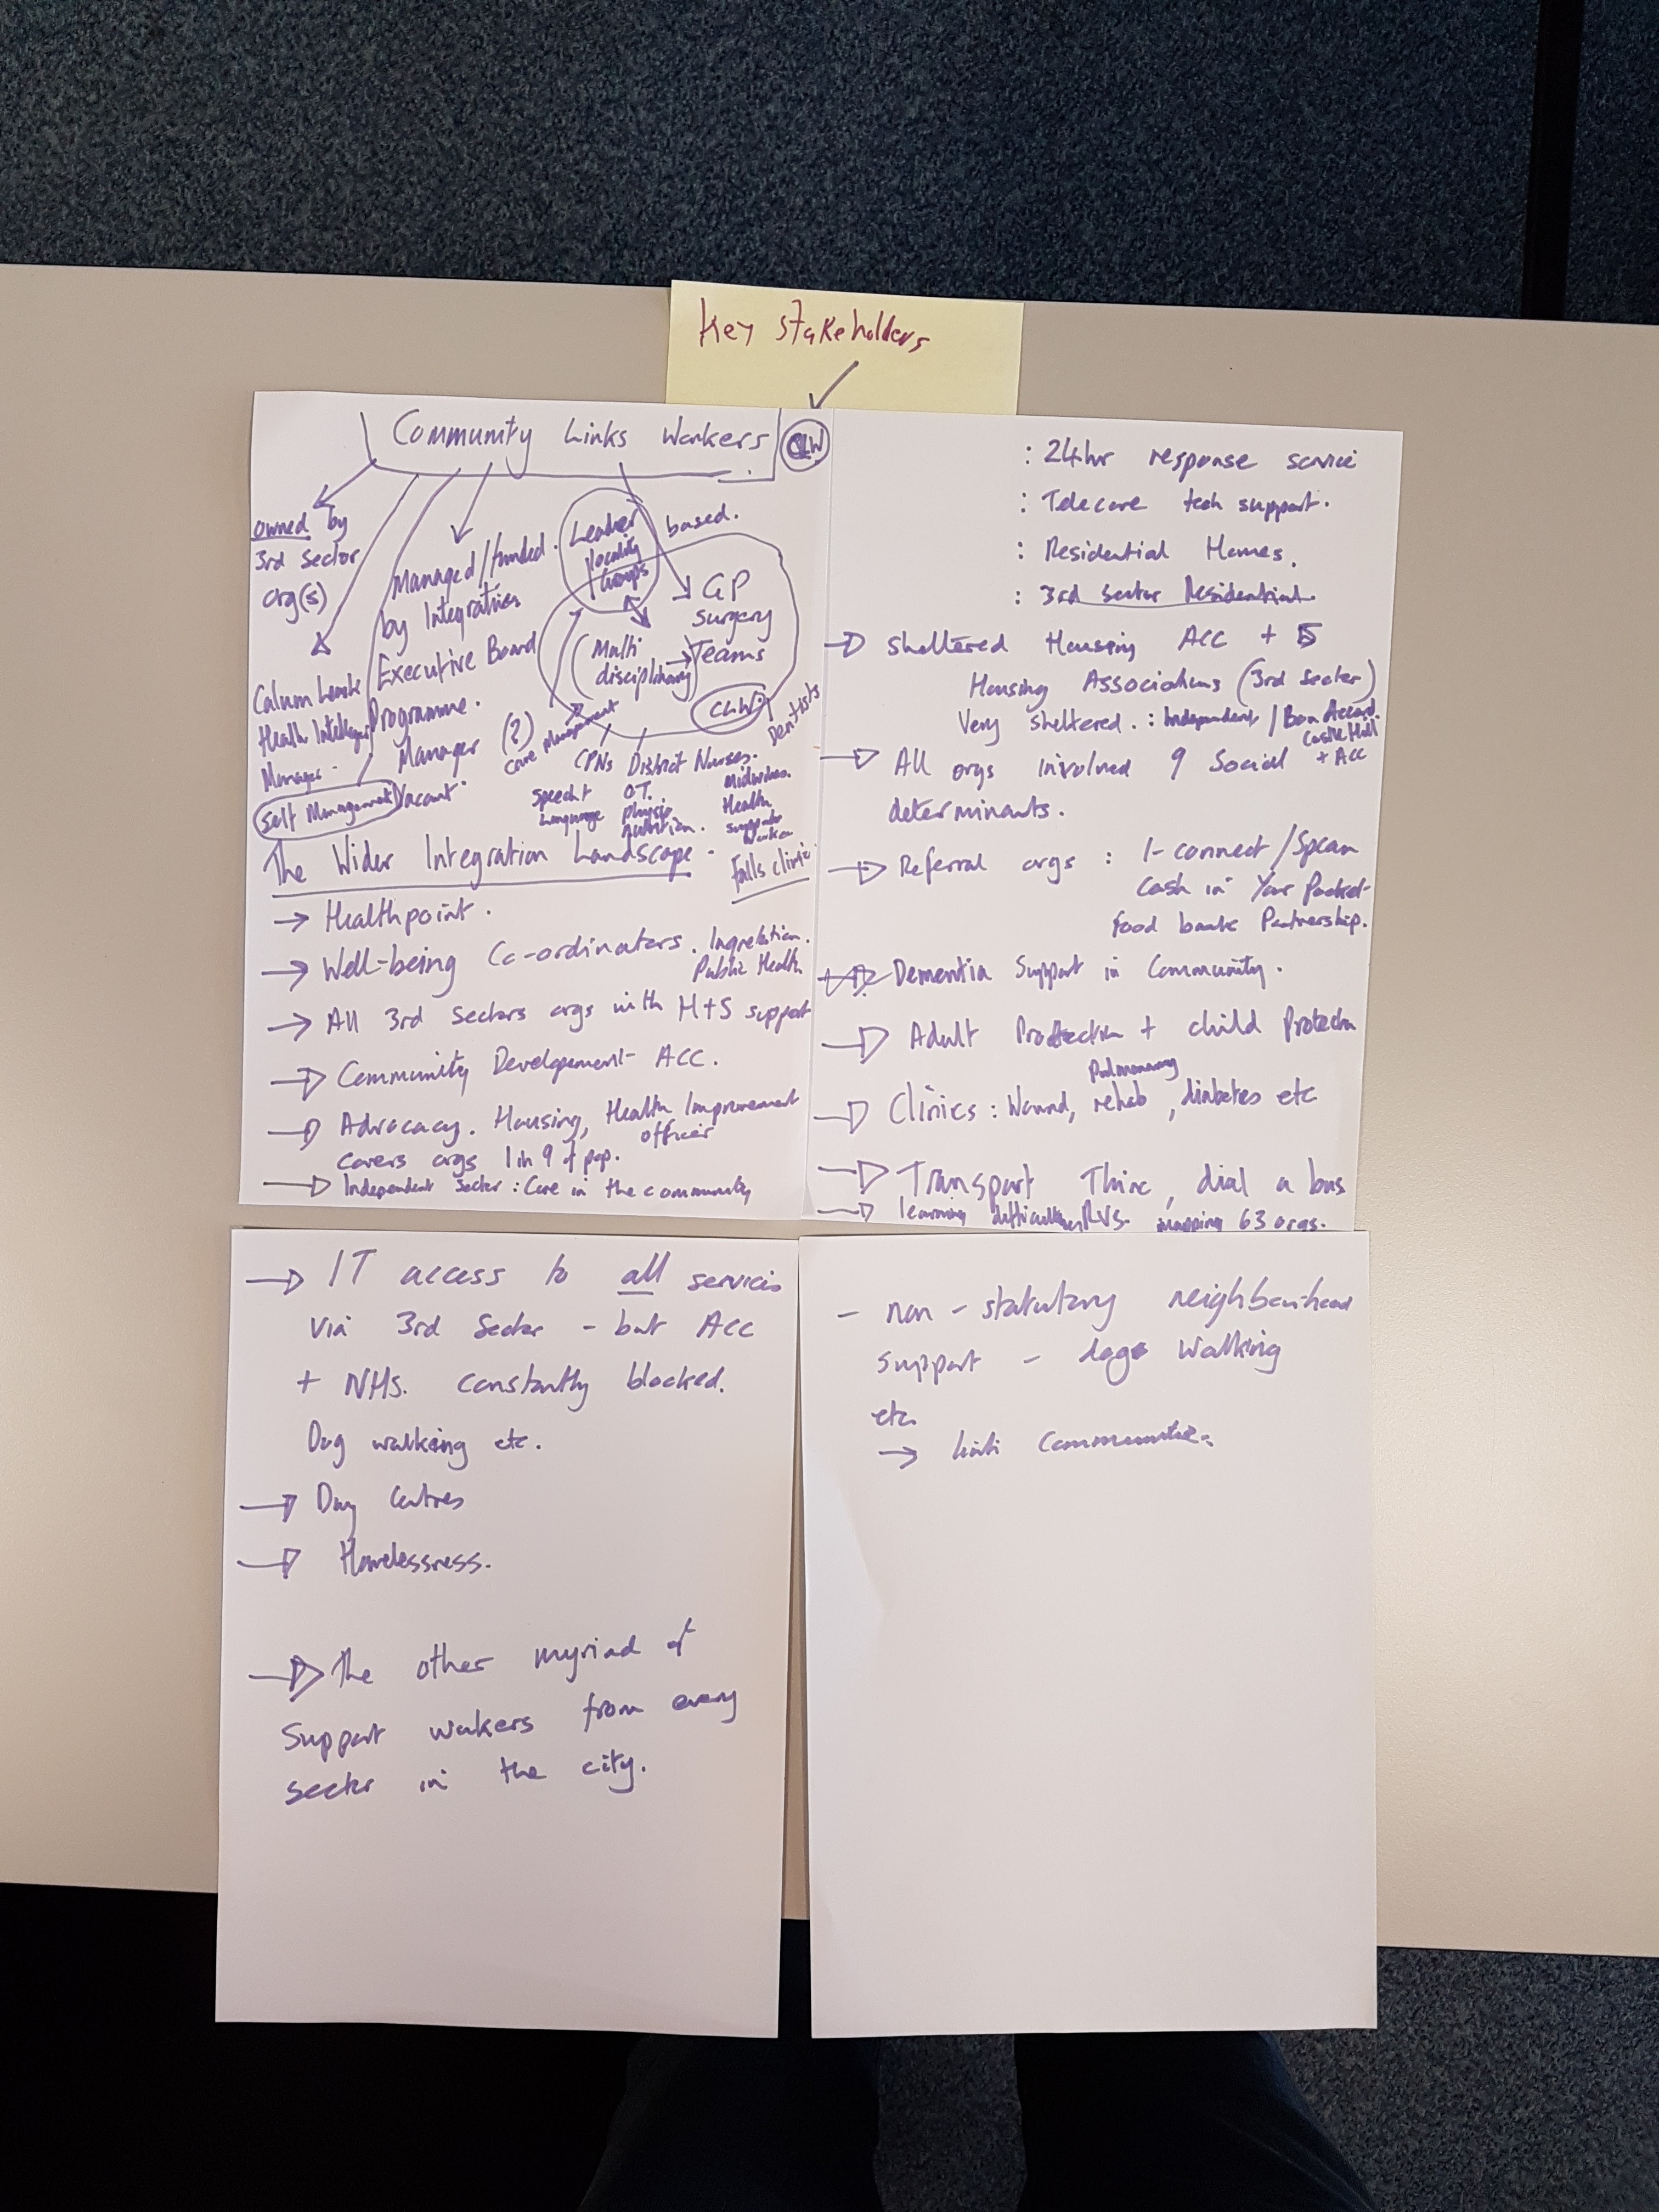 Key stakeholders
Community Links Workers
CLW
owned by
3rd Sector
org(s)
Managed/funded.
by Integration
Executive Board
Programme.
Manager (?)
Vacant.
Leader
locality
Groups
based.
GP
surgery
Teams
Multi
disciplinary
CLW.
Calum
Health
Manager.
Self Management
care management
CPNs District Nurses.
Dentists
Speech +
language
OT.
physio
nutrition.
Midwives.
Health
support
worker
Falls clinic.
The Wider Integration Landscape.
Healthpoint.
Well-being Co-ordinators.
Public Health
All 3rd Sectors orgs with H+S support
Community Developement ACC.
Advocacy. Housing, Health Improvement
officer
Covers orgs 1 in 9 of pop.
Independent sector : Care in the community
: 24hr response service
: Telecare tech support.
: Residential Homes.
: 3rd sector Residential.
Sheltered Housing ACC + 5
Housing Associations (3rd sector)
Very sheltered. : Independent / Bon Accord.
Castlehill
+ ACC
All orgs involved 9 Social
determinants.
Referral orgs : 1-connect /
Cash in Your Pocket
food bank Partnership.
Dementia Support in Community.
Adult Protection + child Protection
Pulmonary
Clinics : Wound, rehab, diabetes etc
Transport Thinc, dial a bus
learning difficulties RVS. mapping 63 orgs.
IT access to all services
via 3rd Sector - but ACC
+ NHS. constantly blocked.
Dog walking etc.
Day Centres
Homelessness.
The other myriad of
Support workers from every
sector in the city.
- non-statutory neighbourhood
support - dog walking
etc
→ link Communities